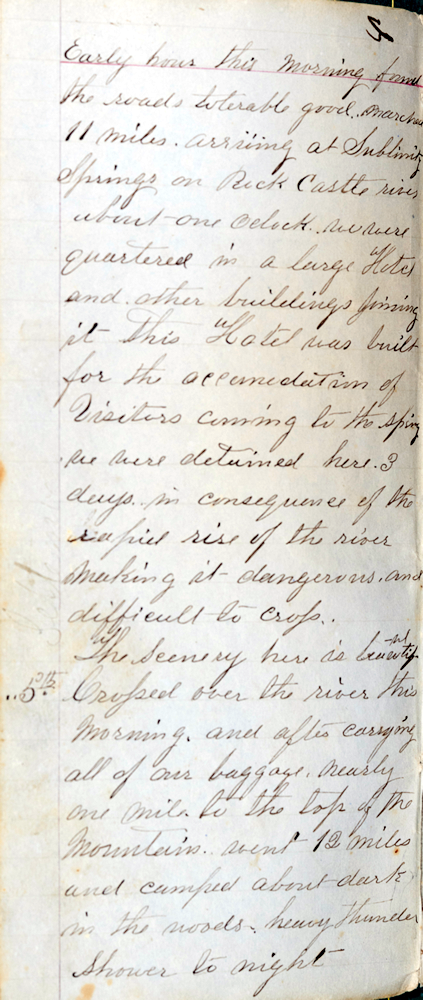 Early hour this morning found
the roads tolerable good. marched
11 miles. arriving at Sublimity
Springs on Rock Castle river
about one Oclock. we were
quartered in a large Hotel
and other buildings joining
it This Hotel was built
for the accomodation of
Visitors coming to the spring
we were detained here. 3
days. in consequence of the
rapid rise of the river
making it dangerous. and
difficult to cross.
The Scenery here is beautiful
5th. Crossed over the river this
morning. and after carrying
all of our baggage. nearly
one mile. to the top of the
Mountain. went 12 miles
and camped about dark
in the woods. heavy thunder
shower to night